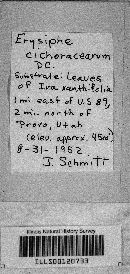 Erysiphe
cichoracearum
DC.
Substrate: Leaves
of Iva xanthifolia
1 mi. east of U.S 89,
2 mi. north of
Provo, Utah
(elev. approx. 4500')
8-31-1952
J. Schmitt
Illinois Natural History Survey
ILLS00120733